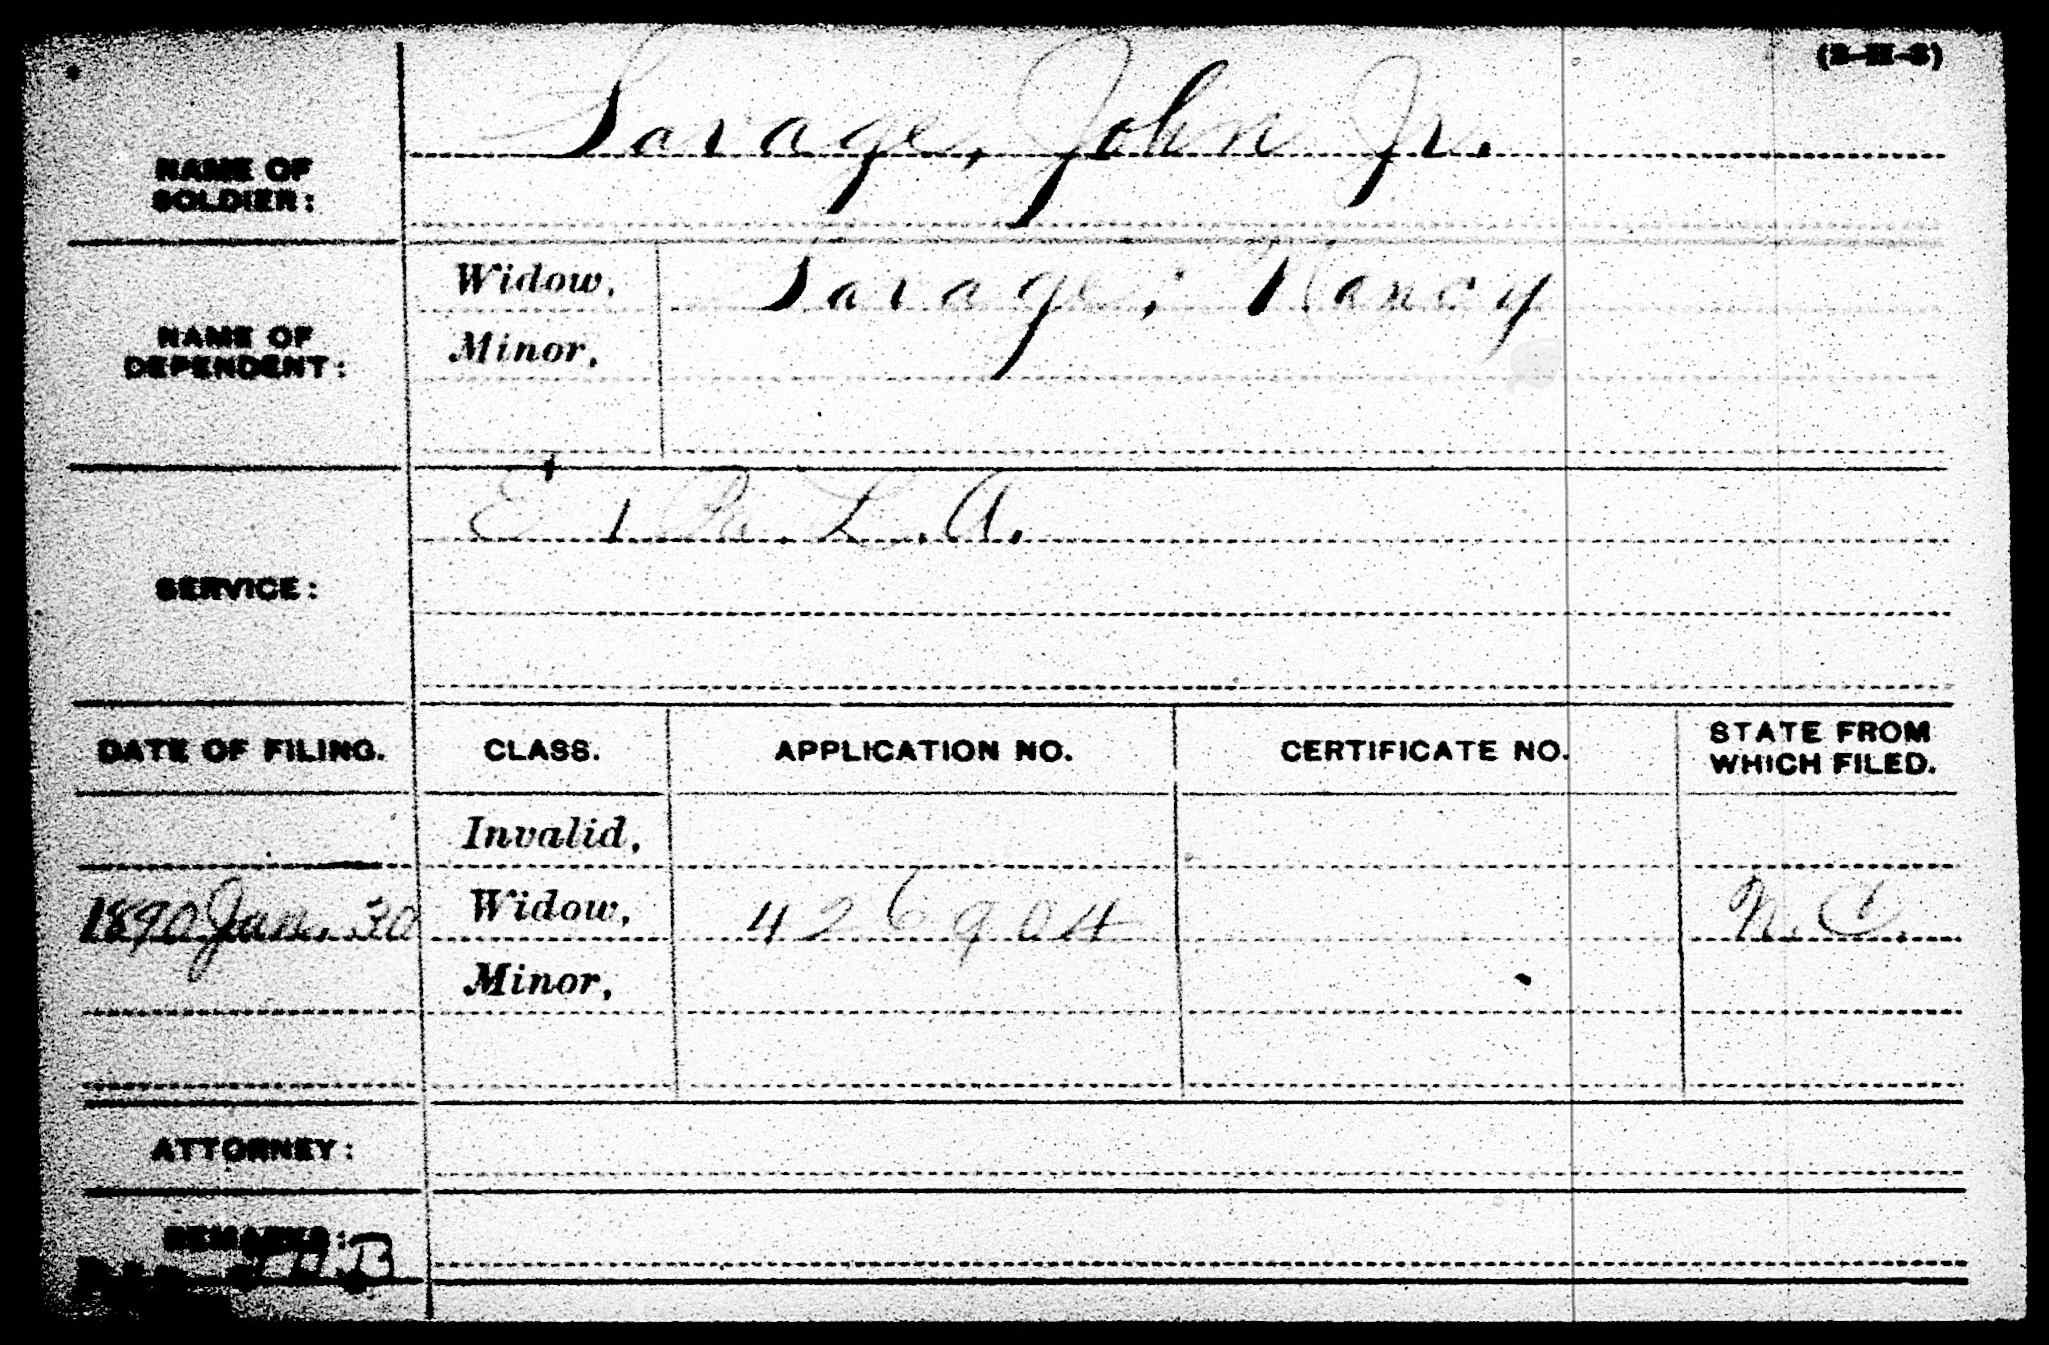 (3-II-3)
NAME OF SOLDIER:
Savage, John Jr.
NAME OF DEPENDENT:
Widow, Savage, Nancy
Minor,
SERVICE:
E 1 Pa. L. A.
DATE OF FILING. CLASS. APPLICATION NO. CERTIFICATE NO. STATE FROM WHICH FILED.
Invalid,
1890 Jan. 30 Widow, 426904 N. C.
Minor,
ATTORNEY:
REMARKS: